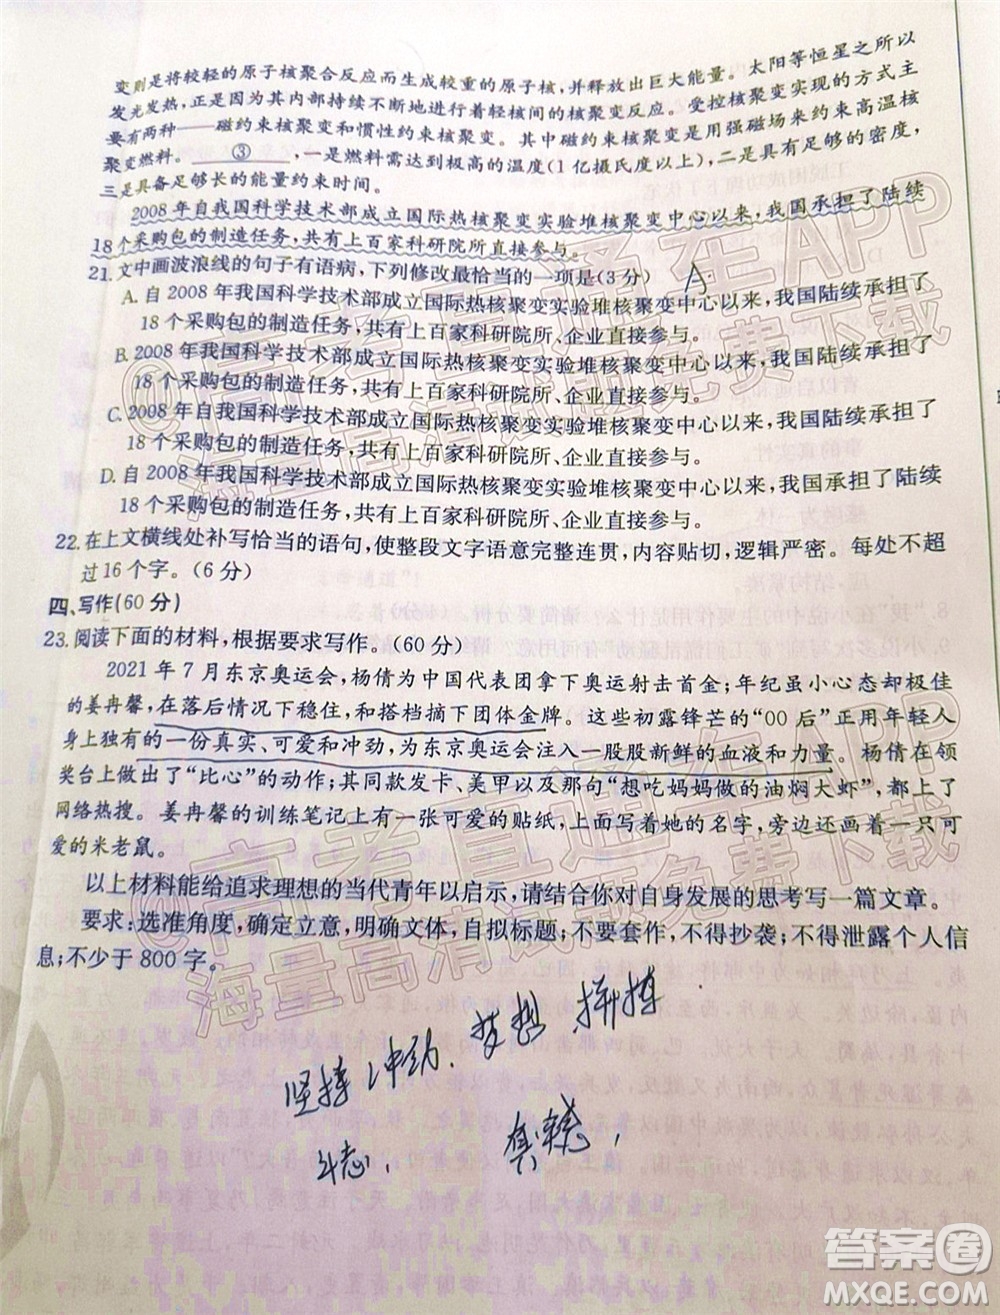 变则是将较轻的原子核聚合反应而生成较重的原子核,并释放出巨大能量。太阳等恒星之所以
发光发热,正是因为其内部持续不断地进行着轻核间的核聚变反应。受控核聚变实现的方式主
要有两种——磁约束核聚变和惯性约束核聚变。其中磁约束核聚变是用强磁场来约束高温核
聚变燃料。 ③ ,一是燃料需达到极高的温度(1亿摄氏度以上),二是具有足够的密度,
三是具备足够长的能量约束时间。
2008年自我国科学技术部成立国际热核聚变实验堆核聚变中心以来,我国承担了陆续
18个采购包的制造任务,共有上百家科研院所直接参与。
21.文中画波浪线的句子有语病,下列修改最恰当的一项是(3分) A.
A.自2008年我国科学技术部成立国际热核聚变实验堆核聚变中心以来,我国陆续承担了
18个采购包的制造任务,共有上百家科研院所、企业直接参与。
B.2008年我国科学技术部成立国际热核聚变实验堆核聚变中心以来,我国陆续承担了
18个采购包的制造任务,共有上百家科研院所、企业直接参与。
C.2008年自我国科学技术部成立国际热核聚变实验堆核聚变中心以来,我国陆续承担了
18个采购包的制造任务,共有上百家科研院所、企业直接参与。
D.自2008年我国科学技术部成立国际热核聚变实验堆核聚变中心以来,我国承担了陆续
18个采购包的制造任务,共有上百家科研院所、企业直接参与。
22.在上文横线处补写恰当的语句,使整段文字语意完整连贯,内容贴切,逻辑严密。每处不超
过16个字。(6分)
四、写作(60分)
23.阅读下面的材料,根据要求写作。(60分)
2021年7月东京奥运会,杨倩为中国代表团拿下奥运射击首金;年纪虽小心态却极佳
的姜冉馨,在落后情况下稳住,和搭档摘下团体金牌。这些初露锋芒的“00后”正用年轻人
身上独有的一份真实、可爱和冲劲,为东京奥运会注入一股股新鲜的血液和力量。杨倩在领
奖台上做出了“比心”的动作;其同款发卡、美甲以及那句“想吃妈妈做的油焖大虾”,都上了
网络热搜。姜冉馨的训练笔记上有一张可爱的贴纸,上面写着她的名字,旁边还画着一只可
爱的米老鼠。
以上材料能给追求理想的当代青年以启示,请结合你对自身发展的思考写一篇文章。
要求:选准角度,确定立意,明确文体,自拟标题;不要套作,不得抄袭;不得泄露个人信
息;不少于800字。
坚持 冲劲. 梦想 拼搏.
斗志.
@高考直通车APP
海量高清试题免费下载
@高考直通车APP
海量高清试题免费下载
答案圈
MXQE.COM